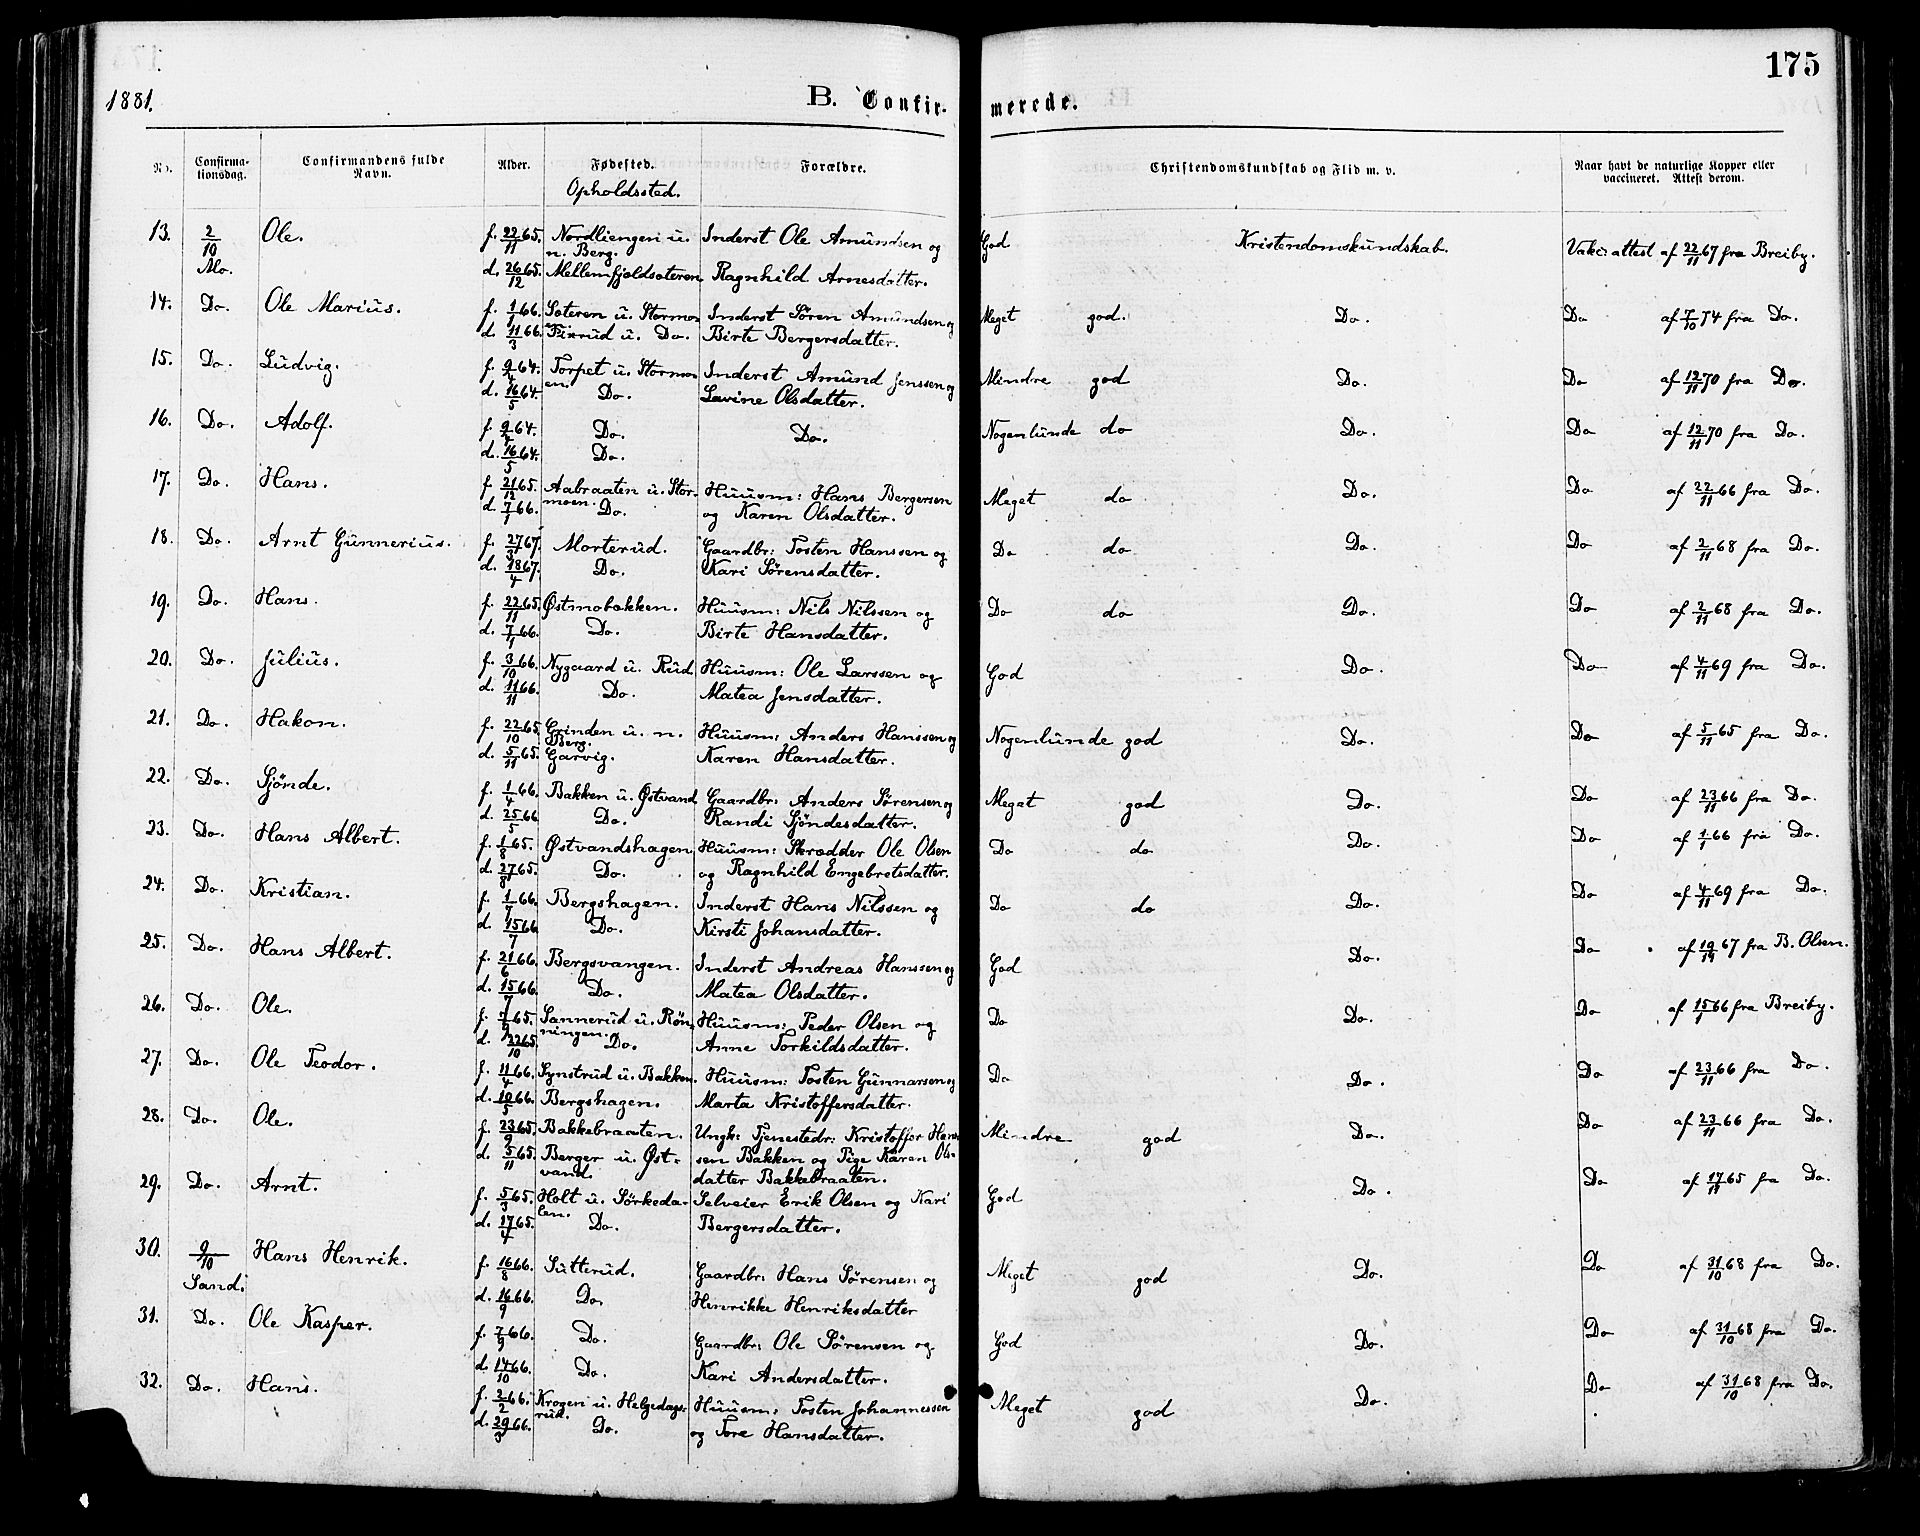 175
1881.
B. Confirmerede.
No. Confirmationsdag. Confirmandens fulde Navn. Alder. Fødested. Forældre. Christendomskundskab og Flid m. v. Naar havt de naturlige Kopper eller vaccineret. Attest derom.
Opholdssted.
13. 2/10 Ole. f. 22/11 65. Nordliengen u. n. Berg. Inderst Ole Amundsen og God Kristendomskundskab. Vakc: attest af 22/11 67 fra Breiby.
Mo. d. 26/12 65. Mellemfjeldsæteren Ragnhild Arnesdatter.
14. Do. Ole Marius. f. 1/1 66. Sæteren u. Stormoen Inderst Sören Amundsen og Meget god. Do. Do af 7/10 74 fra Do.
d. 11/3 66. Fixrud u. Do. Birte Bergersdatter.
15. Do. Ludvig. f. 9/4 64. Torpet u. Stormoen. Inderst Amund Jenssen og Mindre god Do. Do af 12/11 70 fra Do.
d. 16/5 64. Do. Lavine Olsdatter.
16. Do. Adolf. f. 9/4 64. Do. Do. Nogenlunde do Do. Do af 12/11 70 fra Do.
d. 16/5 64. Do.
17. Do. Hans. f. 21/12 65. Aabraaten u. Stormoen. Huusm: Hans Bergersen Meget do Do. Do af 22/11 66 fra Do.
d. 7/1 66. Do. og Karen Olsdatter.
18. Do. Arnt Gunnerius. f. 27/3 67. Morterud. Gaardbr: Tosten Hanssen og Do do Do. Do af 2/11 68 fra Do.
d. 18/4 67. Do. Kari Sörensdatter.
19. Do. Hans. f. 22/11 65. Østmobakken. Huusm: Nils Nilssen og Do do Do. Do af 2/11 68 fra Do.
d. 7/1 66. Do. Birte Hansdatter.
20. Do. Julius. f. 3/10 66. Nygaard u. Rud Huusm: Ole Larssen og God Do. Do af 4/11 69 fra Do.
d. 11/11 66. Do. Matea Jensdatter.
21. Do. Hakon. f. 22/10 65. Grinden u. n. Berg. Huusm: Anders Hanssen og Nogenlunde god Do. Do af 5/11 65 fra Do.
d. 5/11 65. Garvig. Karen Hansdatter.
22. Do. Sjönde. f. 1/4 66. Bakken u. Østvand Gaardbr: Anders Sörensen og Meget god Do. Do af 23/11 66 fra Do.
d. 25/5 66 Do. Randi Sjöndesdatter.
23. Do. Hans Albert. f. 1/8 65. Østvandshagen Huusm: Skrædder Ole Olsen Do do Do. Do af 1/1 66 fra Do.
d. 27/8 65. Do. og Ragnhild Engebretsdatter.
24. Do. Kristian. f. 1/7 66. Bergshagen. Inderst Hans Nilssen og Do do Do. Do af 4/11 69 fra Do.
d. 15/7 66. Do. Kirsti Johansdatter.
25. Do. Hans Albert. f. 21/6 66. Bergsvangen. Inderst Andreas Hanssen og God Do. Do af 19/11 67 fra B. Olsen.
d. 15/7 66. Do. Matea Olsdatter.
26. Do. Ole. f. 7/9 65. Sannerud u. Rönningen. Huusm: Peder Olsen og Do Do. Do af 15/1 66 fra Breiby.
d. 22/10 65. Do. Anne Torkildsdatter.
27. Do. Ole Teodor. f. 11/4 66. Synstrud u. Bakken. Huusm: Tosten Gunnarsen og Do Do. Do af 23/11 66 fra Do.
d. 10/5 66. Bergshagen. Marta Kristoffersdatter.
28. Do. Ole. f. 23/9 65. Bakkebraaten. Ungk: Tjenestedr: Kristoffer Hans- Mindre god Do. Do af 23/11 66 fra Do.
d. 5/11 65. Berger u. Østvand. sen Bakken og Pige Karen Ols-
datter Bakkebraaten.
29. Do. Arnt. f. 5/3 65. Holt u. Sörkedalen. Selveier Erik Olsen og Kari God Do. Do af 17/11 65 fra Do.
d. 17/4 65. Do. Bergersdatter.
30. 9/10 Hans Henrik. f. 16/8 66. Sutterud. Gaardbr: Hans Sörensen og Meget god Do. Do af 31/10 68 fra Do.
Sand. d. 16/9 66. Do. Henrikke Henriksdatter
31. Do. Ole Kasper. f. 7/9 66. Do. Gaardbr: Ole Sörensen og God Do. Do af 31/10 68 fra Do.
d. 14/10 66. Do. Kari Andersdatter.
32. Do. Hans. f. 2/2 66. Krogen u. Helgedagsrud. Huusm: Tosten Johannessen Meget god Do. Do af 31/10 68 fra Do.
d. 29/3 66. Do. og Tore Hansdatter.